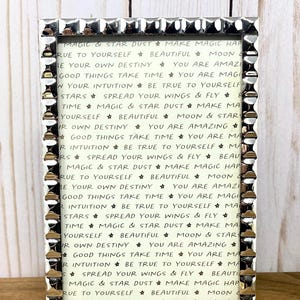 MAGIC & STAR DUST ★ MAKE MAGIC HA
TRUE TO YOURSELF ★ BEAUTIFUL ★ MOON
OWN DESTINY ★ YOU ARE AMAZING
GOOD THINGS TAKE TIME ★ YOU ARE MAG
YOUR INTUITION ★ BE TRUE TO YOURSELF
STARS ★ SPREAD YOUR WINGS & FLY ★
TIME ★ MAGIC & STAR DUST ★ MAKE MA
YOURSELF ★ BEAUTIFUL ★ MOON & STAR
UR OWN DESTINY ★ YOU ARE AMAZING ★
GOOD THINGS TAKE TIME ★ YOU ARE
INTUITION ★ BE TRUE TO YOURSELF ★
RS ★ SPREAD YOUR WINGS & FLY ★ BEA
MAGIC & STAR DUST ★ MAKE MAGIC HAP
TRUE TO YOURSELF ★ BEAUTIFUL ★ MOON
YOUR OWN DESTINY ★ YOU ARE AMAZI
GOOD THINGS TAKE TIME ★ YOU ARE MAG
INTUITION ★ BE TRUE TO YOURSELF ★
STARS ★ SPREAD YOUR WINGS & FLY ★
TIME ★ MAGIC & STAR DUST ★ MAKE MA
YOURSELF ★ BEAUTIFUL ★ MOON & STAR
R OWN DESTINY ★ YOU ARE AMAZING ★
GOOD THINGS TAKE TIME ★ YOU ARE MA
R INTUITION ★ BE TRUE TO YOURSELF ★
★ SPREAD YOUR WINGS & FLY ★ BEAUT
MAGIC & STAR DUST ★ MAKE MAGIC HAP
RUE TO YOURSELF ★ BEAUTIFUL ★ MOON